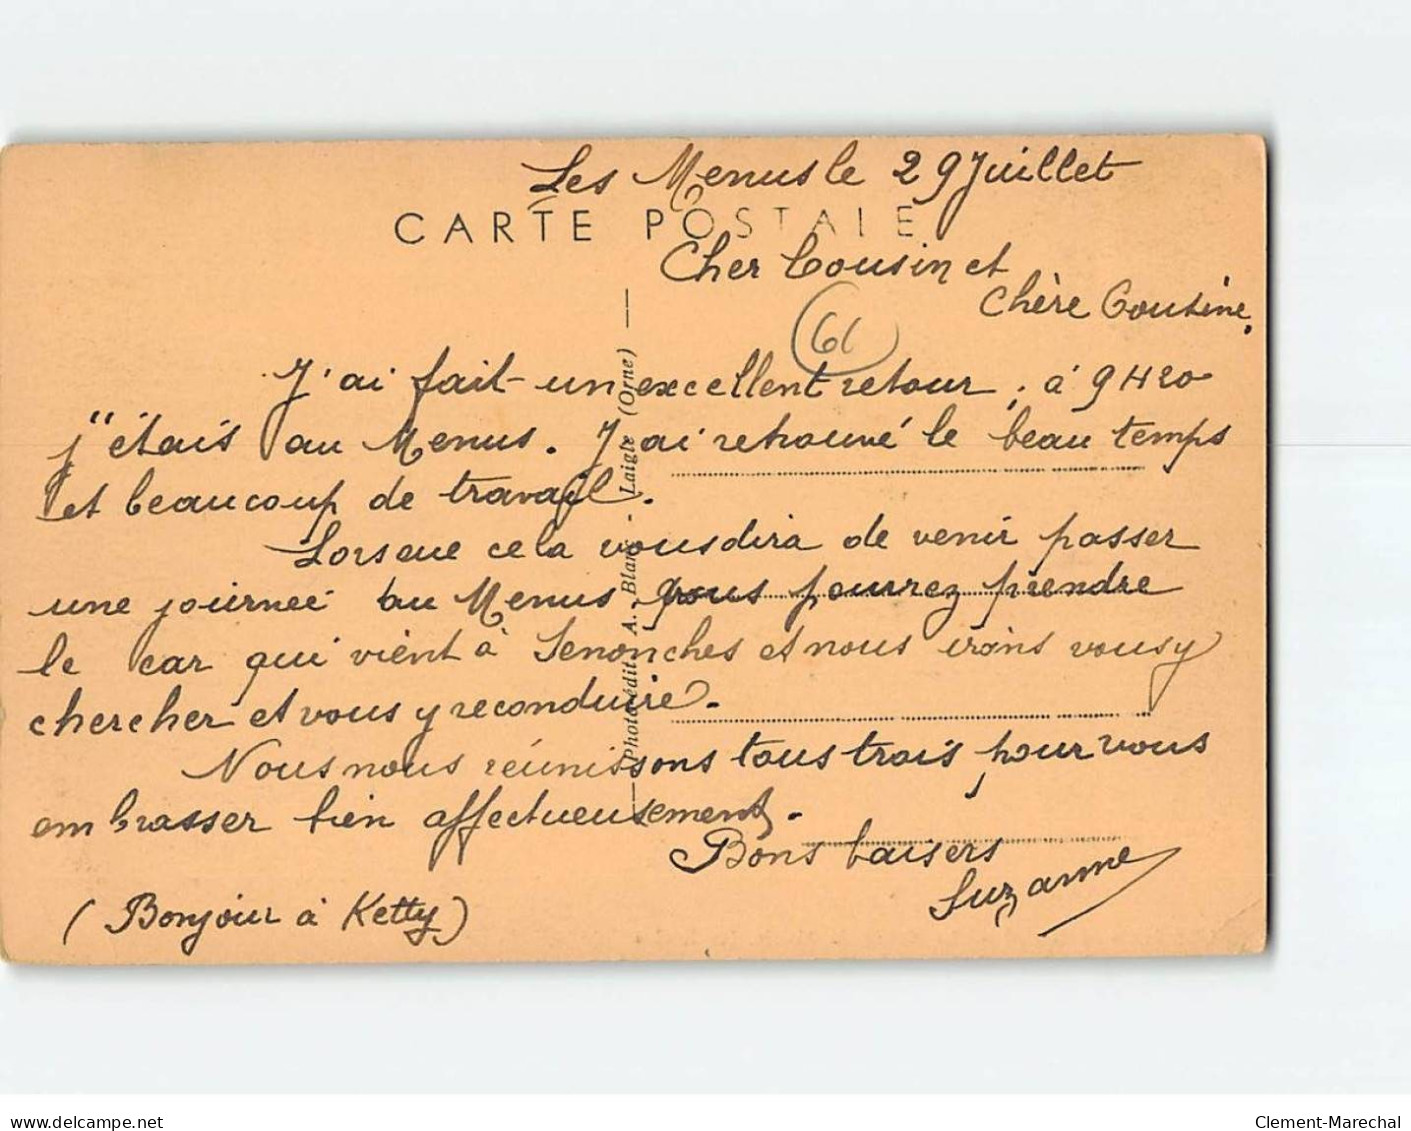 Les Menus le 29 Juillet
CARTE POSTALE
Cher Cousin et
Chère Cousine,
61
J'ai fait un excellent retour, à 9H20
j'étais au Menus. J'ai retrouvé le beau temps
et beaucoup de travail.
Lorsque cela vous dira de venir passer
une journeé au Menus, vous pourrez prendre
le car qui vient à Senonches et nous irons vous y
chercher et vous y reconduire.
Nous nous réunissons tous trois pour vous
embrasser bien affectueusement.
Bons baisers
Suzanne
(Bonjour à Ketty)
Photo édit. A. Blanc - Laigle (Orne)
delcampe.net
Clement-Marechal